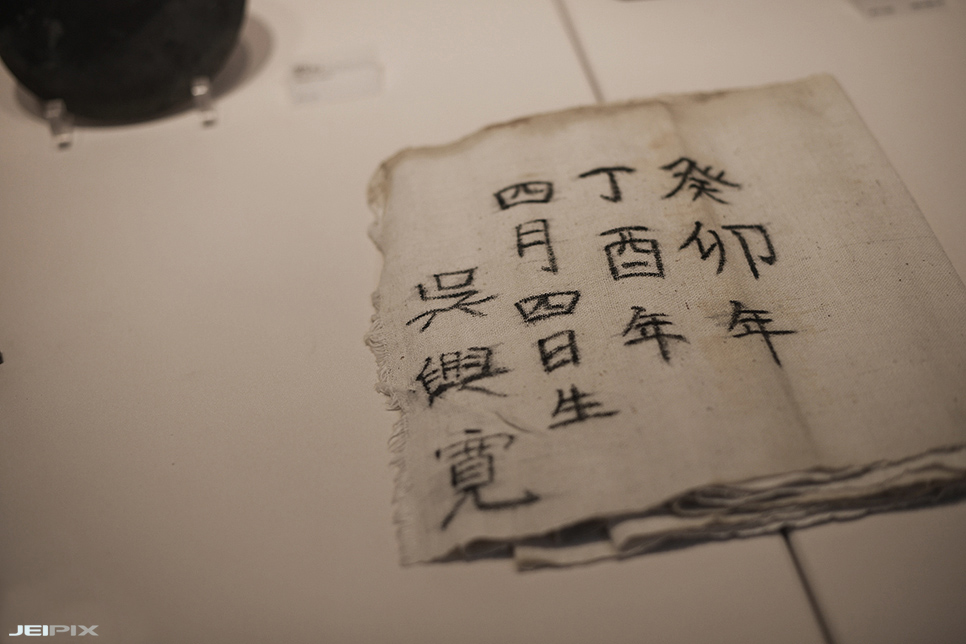 癸卯年
丁酉年
四月四日生
吳興寬
JEIPIX